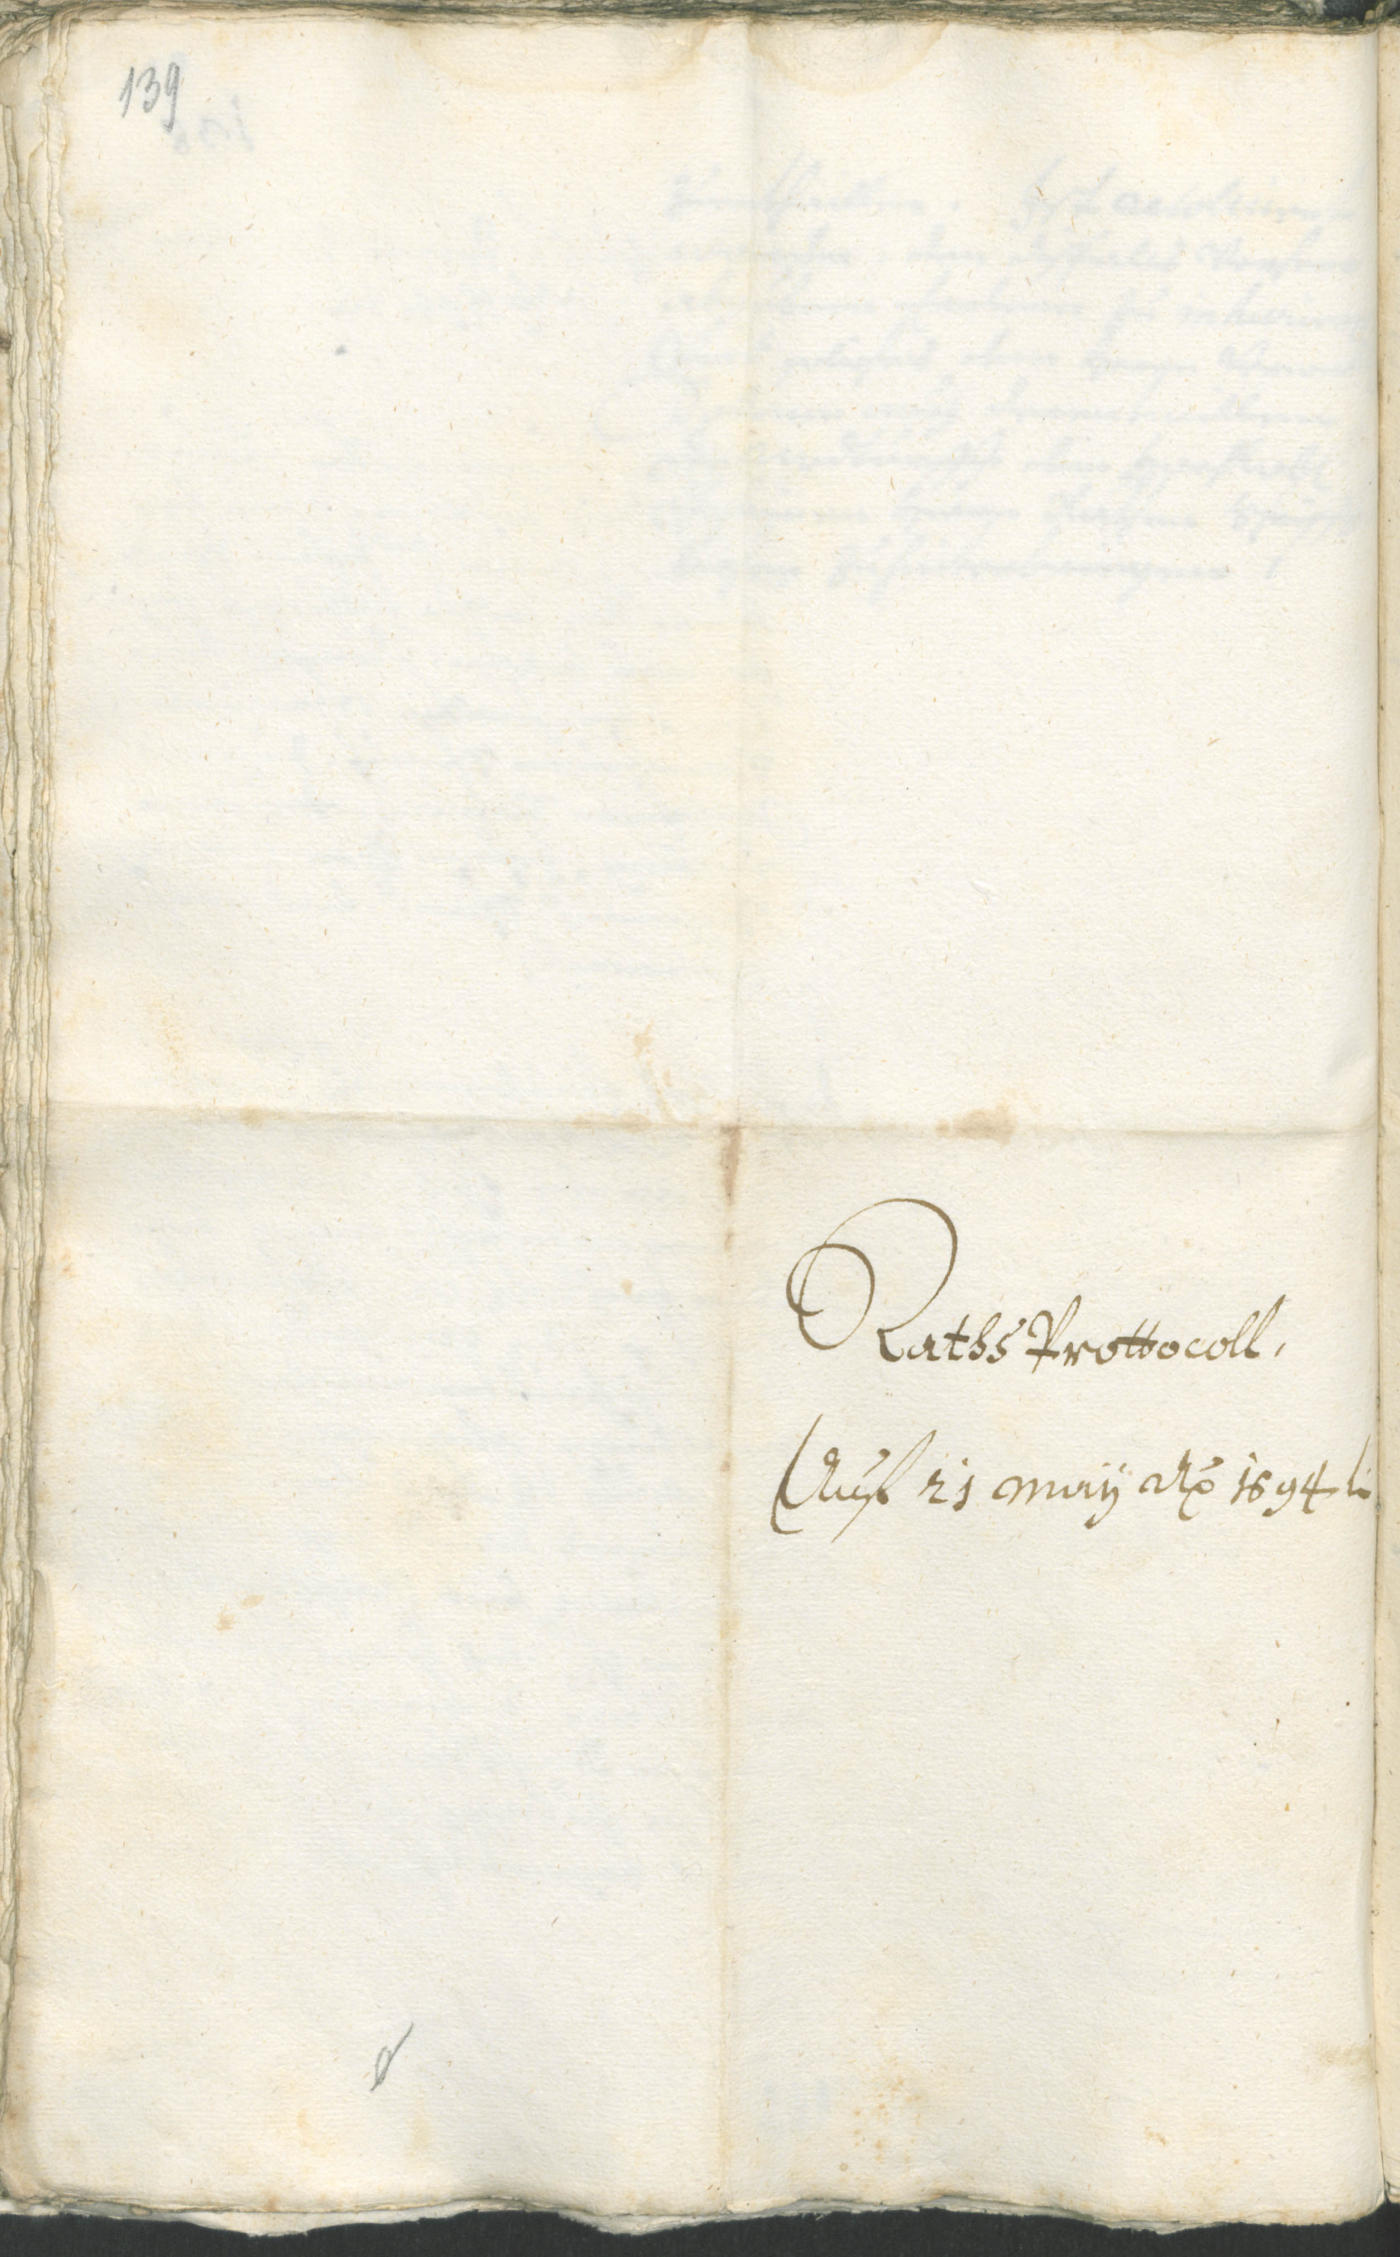 139
Raths Prottocoll,
Auß 21 Maÿ Aõ 1694